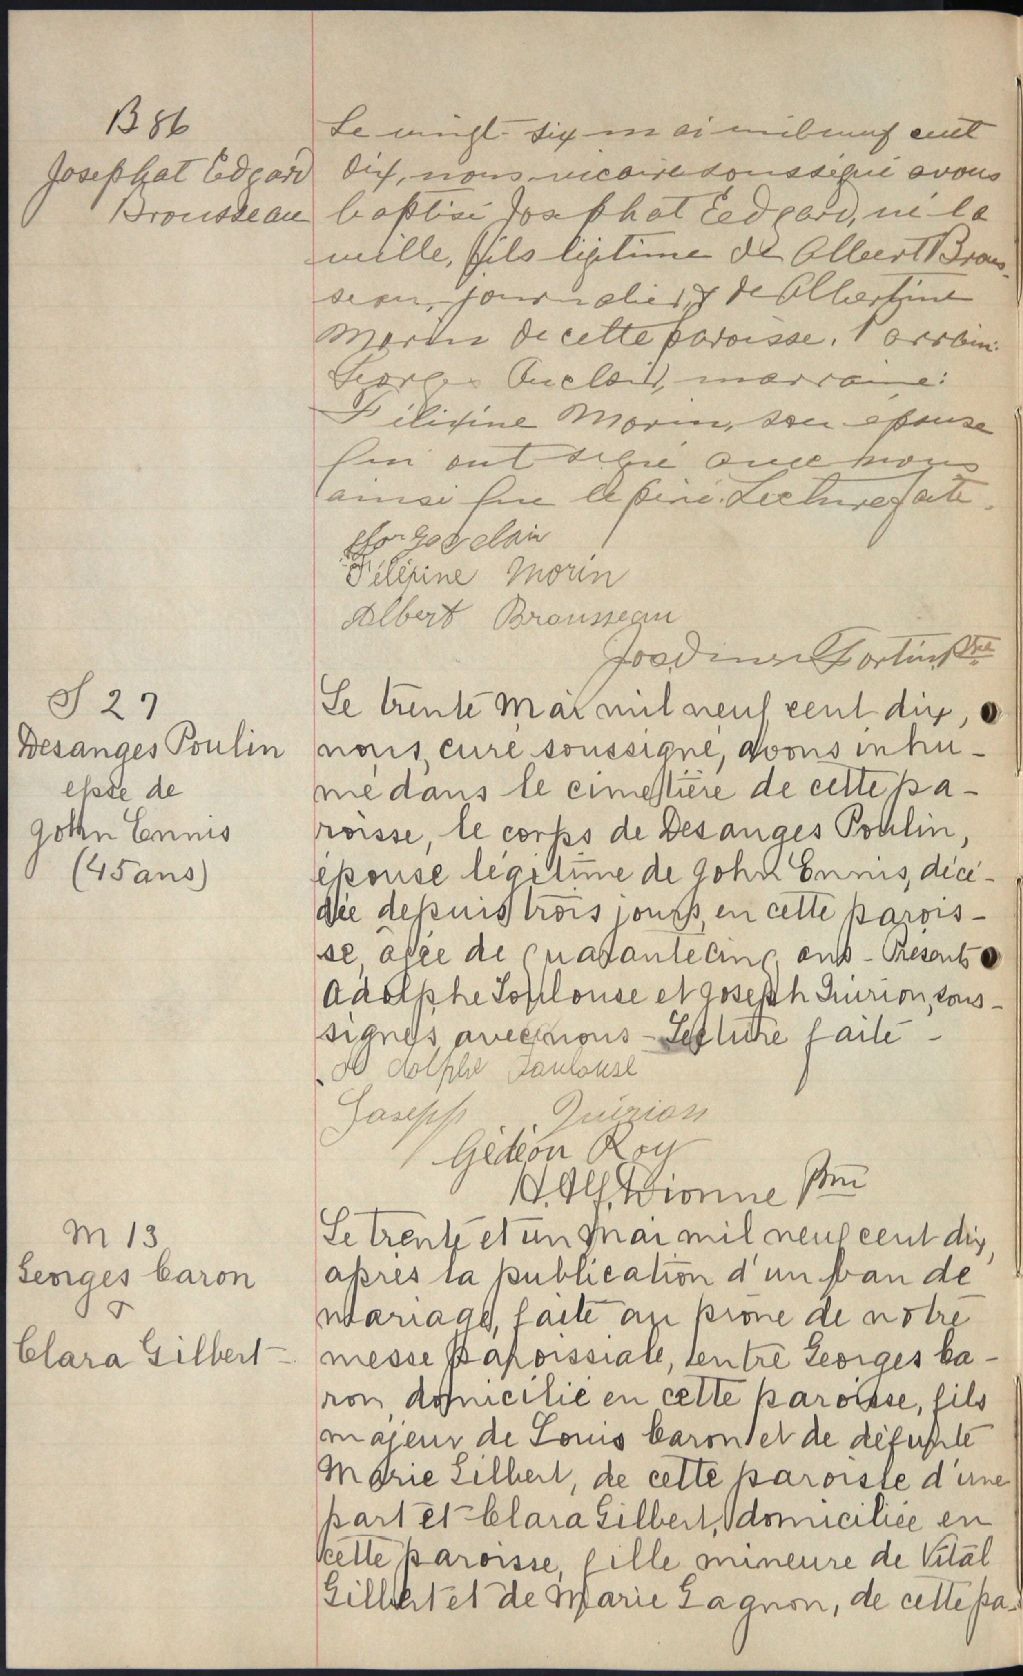 B 86
Josephat Edgard
Brousseau
Le vingt-six mai mil neuf cent
dix, nous vicaire soussigné avons
baptisé Josephat Edgard, né la
veille, fils légitime de Albert Brous-
seau, journalier, & de Albertine
Morin de cette paroisse. Parrain:
Georges Auclair, marraine:
Félixine Morin, son épouse
qui ont signé avec nous
ainsi que le père. Lecture faite.
Géo Auclair
Féléxine Morin
Albert Brousseau
Jos. Fortin Ptre
S 27
Desanges Poulin
epse de
John Ennis
(45 ans)
Le trente Mai mil neuf cent dix,
nous, curé soussigné, avons inhu-
mé dans le cimetière de cette pa-
roisse, le corps de Desanges Poulin,
épouse légitime de John Ennis, décé-
dée depuis trois jours, en cette parois-
se, âgée de quarante cinq ans - Présents
Adolphe Toulouse et Joseph Quirion, sous-
signés avec nous - Lecture faite -
Adolphe Toulouse
Joseph Quirion
Gédéon Roy
H. Alf. Dionne Ptre
M 13
Georges Caron
&
Clara Gilbert -
Le trente et un Mai mil neuf cent dix,
après la publication d'un ban de
mariage, faite au prône de notre
messe paroissiale, entre Georges Ca-
ron, domicilié en cette paroisse, fils
majeur de Louis Caron et de défunte
Marie Gilbert, de cette paroisse d'une
part et Clara Gilbert, domiciliée en
cette paroisse, fille mineure de Vital
Gilbert et de Marie Gagnon, de cette pa-